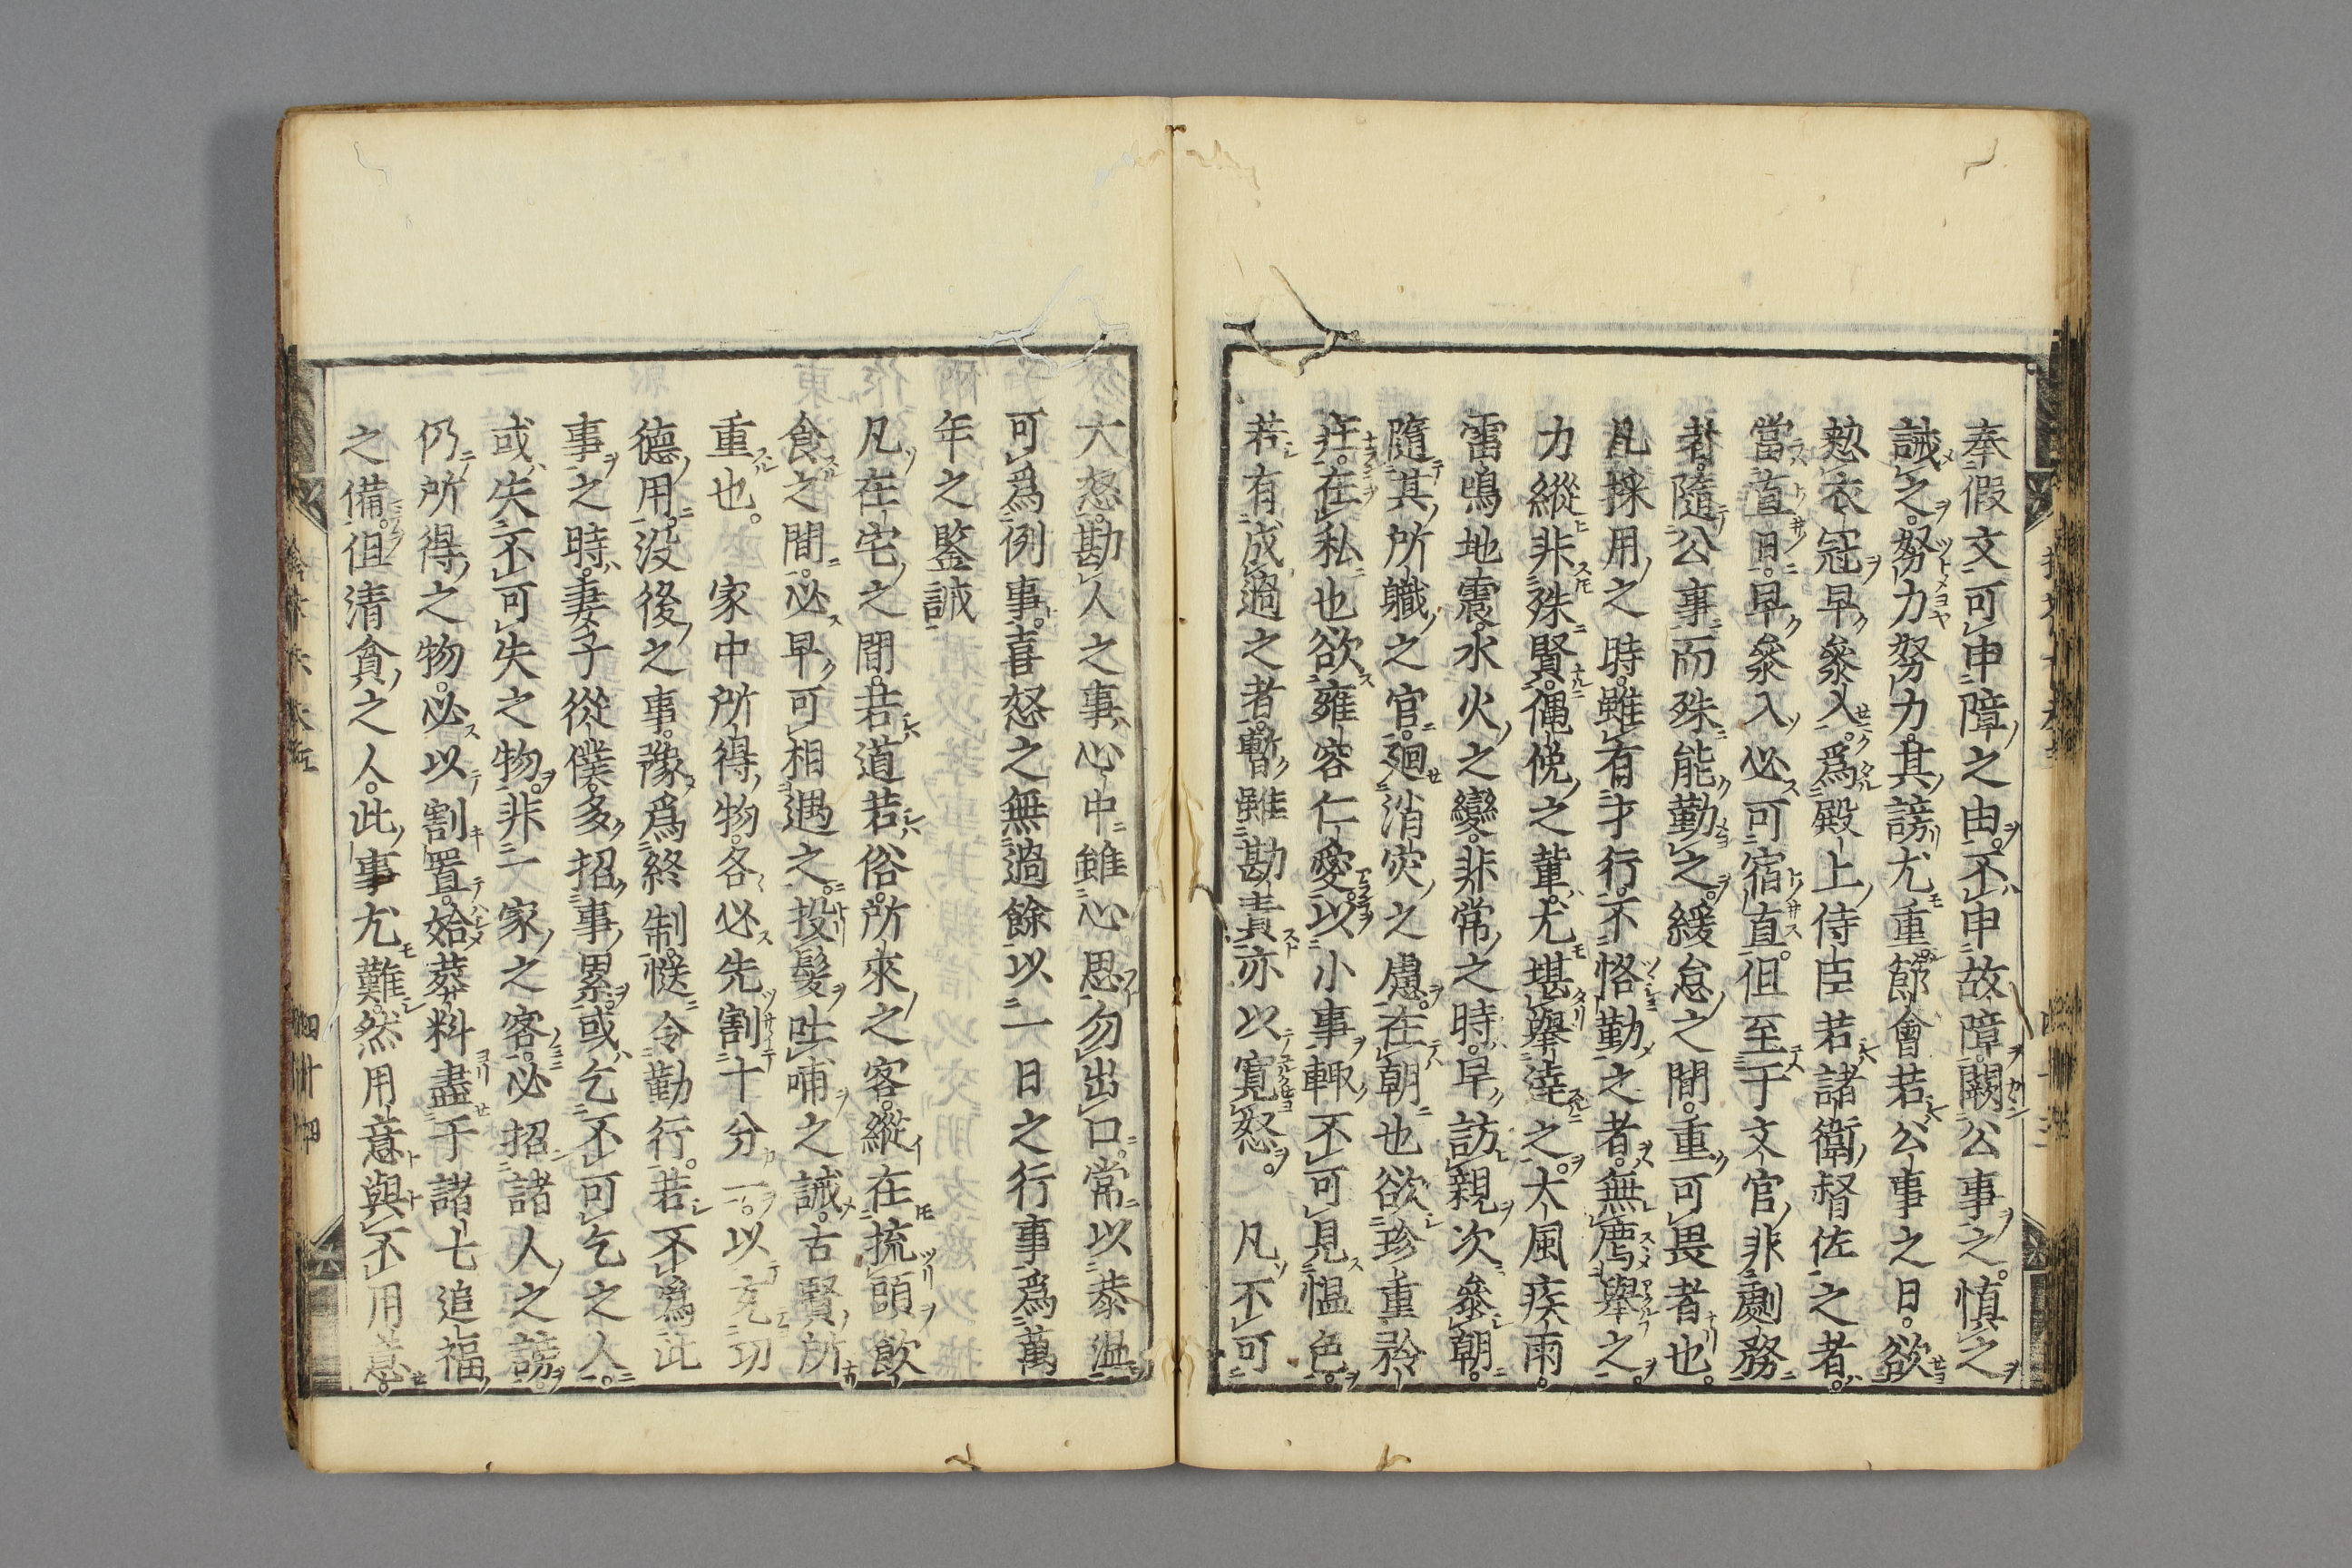 奉假文可申障之由。不申故障。闕公事之。慎之
誡之。努力努力。其謗尤重。節會若公事之日。欲
愸衣冠早參入。爲殿上侍臣若諸衛督佐之者。
當直日。早參入。必可宿直。但至于文官非劇務
者。隨公事而殊能勤之。緩怠之間。重可畏者也。
凡採用之時。雖有才行。不恪勤之者。無薦擧之。
力縱非殊賢。僶俛之輩。尤堪擧達之。大風疾雨。
雷鳴地震。水火之變。非常之時。早訪親次參朝。
隨其所軄之官。廻消灾之慮。在朝也欲珍重矜
莊。在私也欲雍容仁愛。以小事輙不可見愠色。
若有成過之者。暫雖勘責亦以寛恕。凡不可
大怒。勘人之事。心中雖心思。勿出口。常以恭温
可爲例事。喜怒之無過餘以一日之行事爲萬
年之鑒誡
凡在宅之間。若道若俗。所來之客。縱在梳頭飲
食之間。必早可相遇之。投髮吐哺之誡。古賢所
重也。家中所得物。各必先割十分一。以充功
德用。没後之事。豫爲終制。慥令勤行。若不爲此
事之時。妻子從僕。多招事累。或乞不可乞之人。
或失不可失之物。非一家之害。必招諸人之謗。
仍所得之物。必以割置。始葬料盡于諸七追福
之備。但清貧之人。此事尤難。然用意與不用意。
四十四